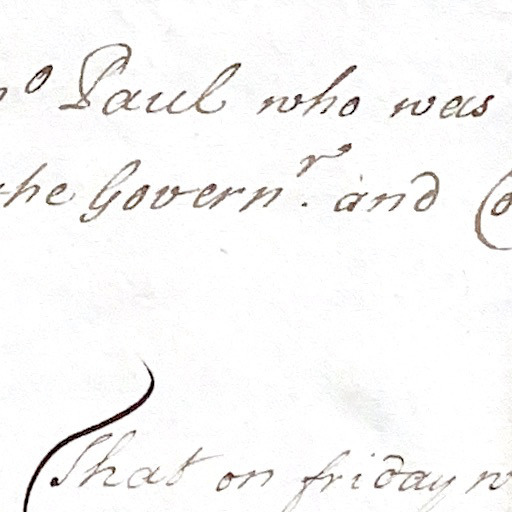 Paul who was
the Govern.r and
That on friday